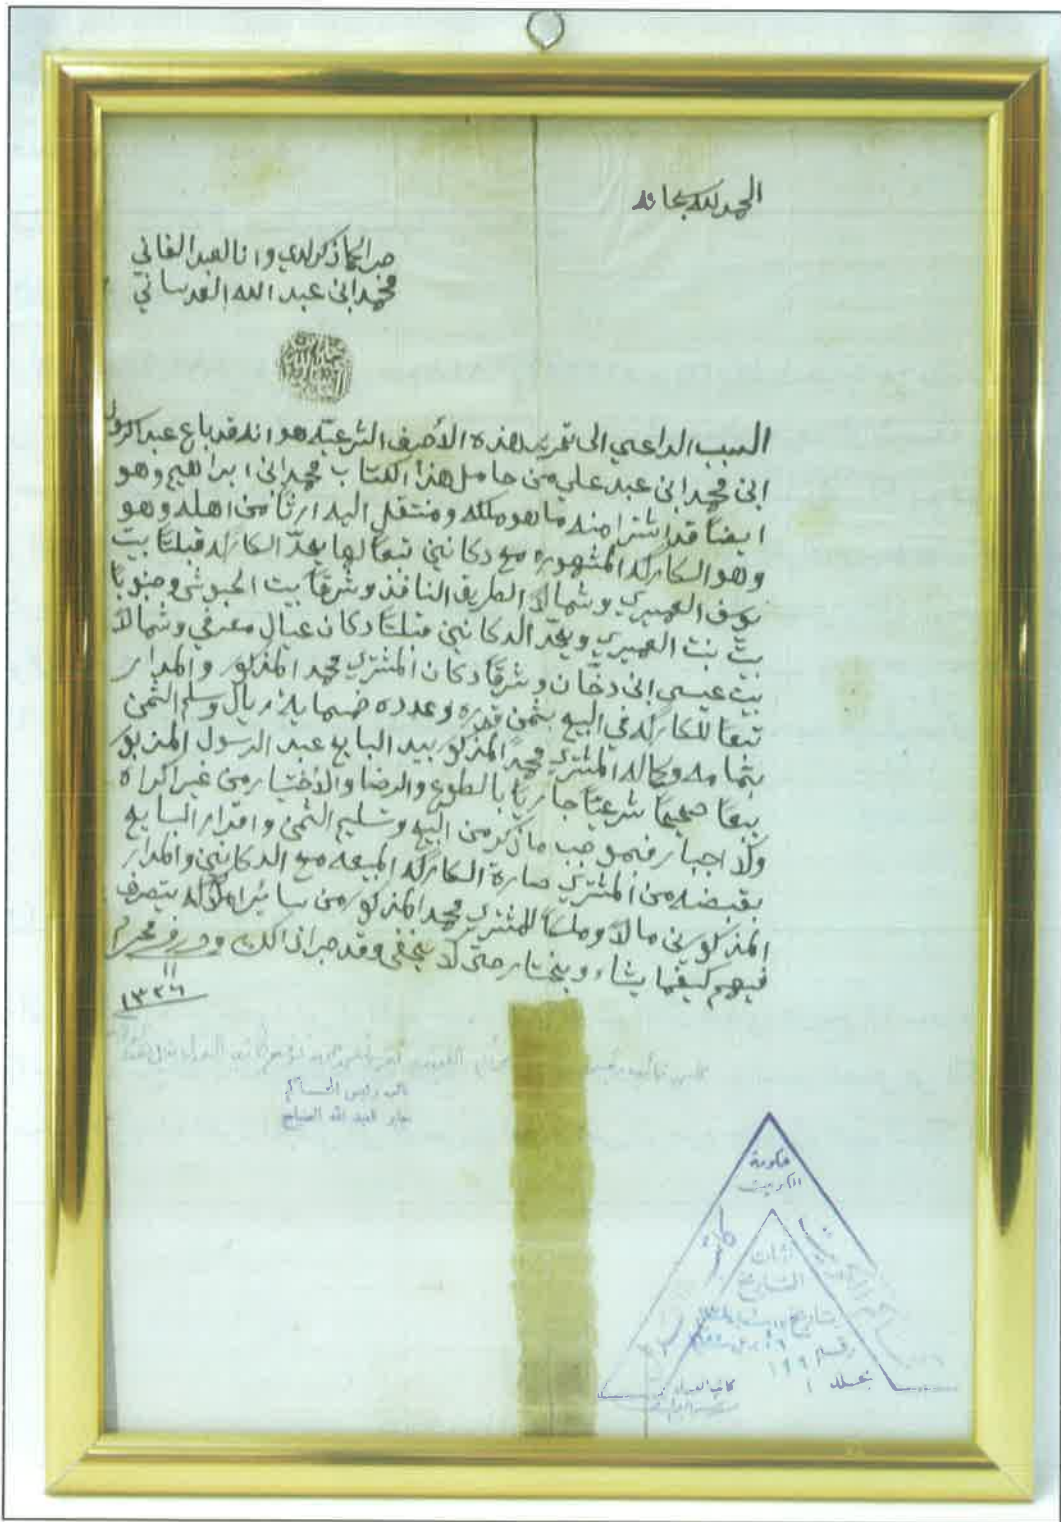 الحمد لله سبحانه
جرا لما ذكر لدي وانا العبد الفاني
محمد ابن عبد الله العدساني
السبب الداعي الى تحرير هذه الأحرف الشرعيّه هو انه قد باع عبد الرسول
ابن محمد ابن عبد علي من حامل هذا الكتاب محمد ابن ابراهيم وهو
ايضاً قد اشترا منه ما هو ملكه ومنتقل اليه ارثاً من اهله وهو
وهو الكاركه المشهوره مع دكانين تبعاً لها يحدّ الكاركه قبلتاً بيت
يوسف العميري وشمالاً الطريق النافذ وشرقاً بيت الحبوشي وجنوباً
بيت بنت العميري ويحدّ الدكانين قبلتاً دكان عيال معرفي وشمالاً
بيت عيسى ابن دخّان وشرقاً دكان المشتري محمد المذكور والمدار
تبعاً للكاركه في البيع بثمن قدره وعدده خمسماية ريال وسلم الثمن
بتمامه وكماله المشتري محمد المذكور بيد البايع عبد الرسول المذكور
بيعاً صحيحاً شرعيّاً جارياً بالطوع والرضا والأختيار من غير اكراه
ولا اجبار فبموجب ما ذكر من البيع وتسليم الثمن واقرار البايع
بقبضه من المشتري صارة الكاركه المبيعه مع الدكانين والمدار
المذكورين مالاً وملكاً للمشتري محمد المذكور من ساير املاكه يتصرف
فيهم كيفما يشاء ويختار حتى لا يخفى وقد جرا ذالك في محرم
١١
١٣٢٦
نائب رئيس المحاكم
جابر العبد الله الصباح
حكومة
الكويت
اثبات
التاريخ
بتاريخ
رقم ١٩٩
بجلد ١
كاتب العدل